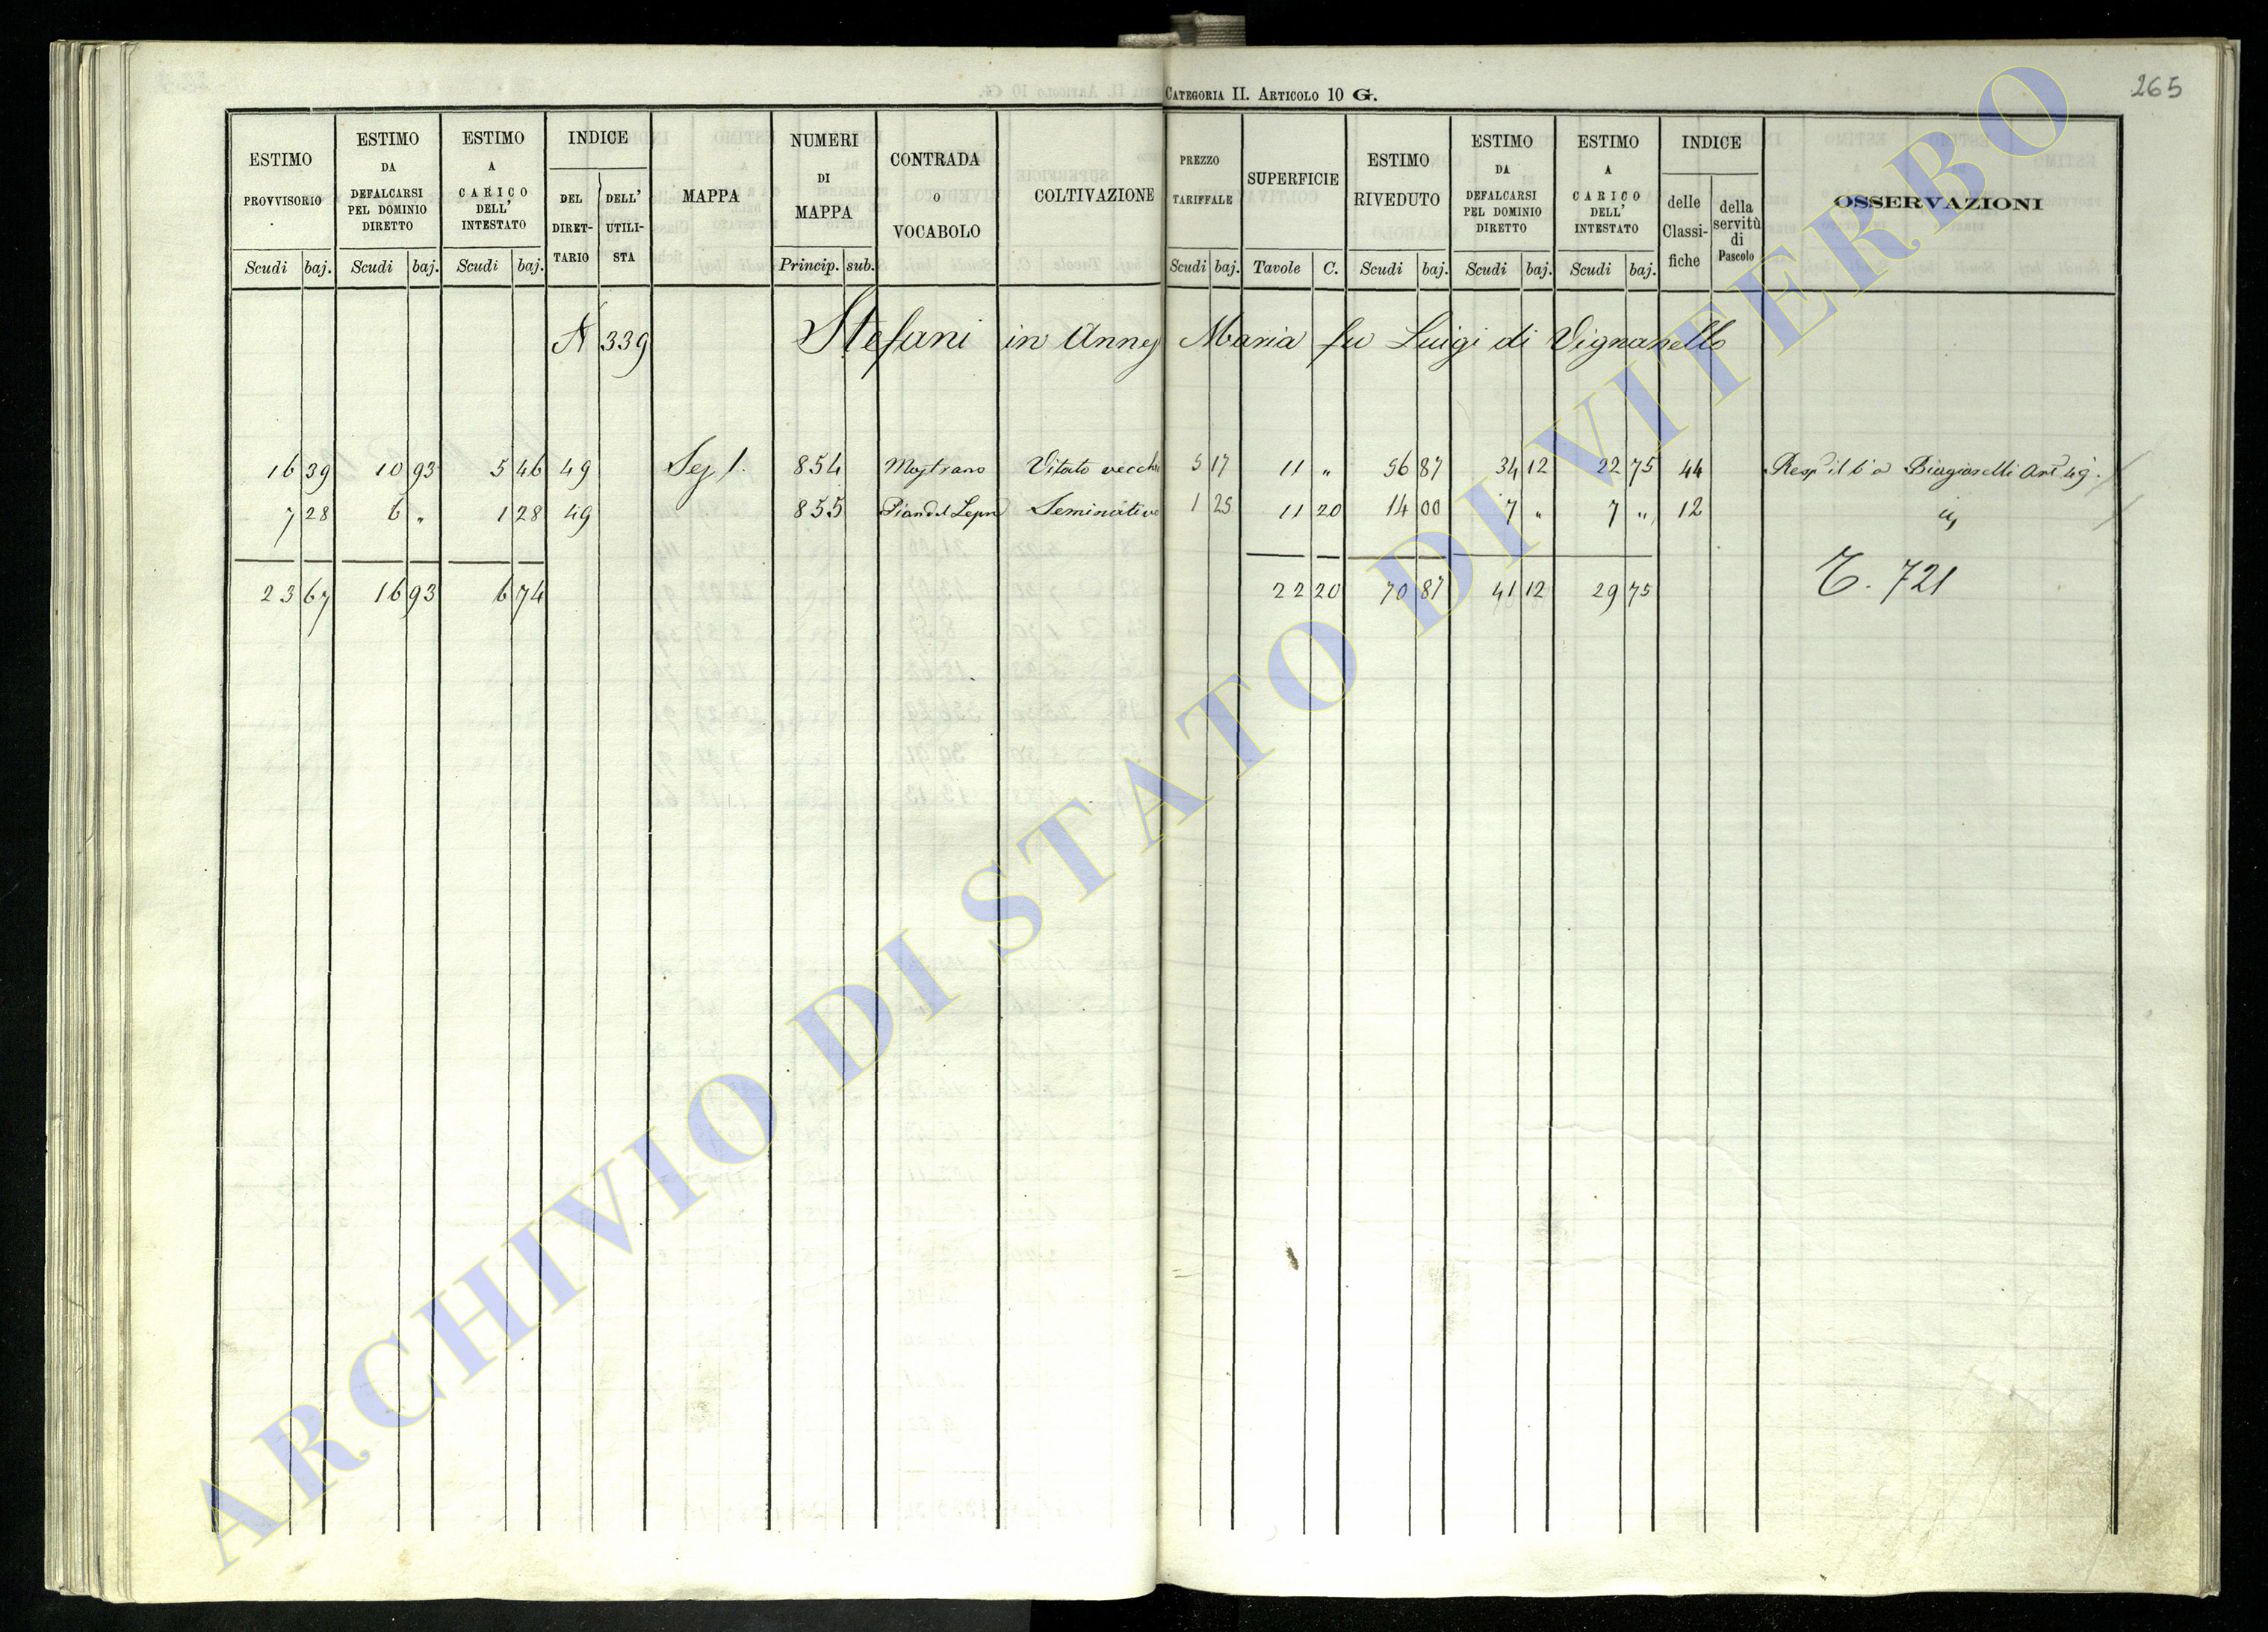 CATEGORIA II. ARTICOLO 10 G.
265
ESTIMO PROVVISORIO
ESTIMO DA DEFALCARSI PEL DOMINIO DIRETTO
ESTIMO A CARICO DELL' INTESTATO
INDICE
DEL DIRETTARIO
DELL' UTILISTA
MAPPA
NUMERI DI MAPPA
CONTRADA O VOCABOLO
COLTIVAZIONE
PREZZO TARIFFALE
SUPERFICIE
ESTIMO RIVEDUTO
ESTIMO DA DEFALCARSI PEL DOMINIO DIRETTO
ESTIMO A CARICO DELL' INTESTATO
INDICE
delle Classifiche
della servitù di Pascolo
OSSERVAZIONI
Scudi baj. Scudi baj. Scudi baj. Princip. sub. Scudi baj. Tavole C. Scudi baj. Scudi baj. Scudi baj.
N 339 Stefani in Annesi Maria fu Luigi di Vignanello
16 39 10 93 5 46 49 Sez 1. 854 Mastrano Vitato vecchio 5 17 11 „ 56 87 34 12 22 75 44 Biagiarelli Art 49.
7 28 6 „ 1 28 49 855 Seminativo 1 25 11 20 14 00 7 „ 7 „ 12
23 67 16 93 6 74 22 20 70 87 41 12 29 75 T. 721
ARCHIVIO DI STATO DI VITERBO